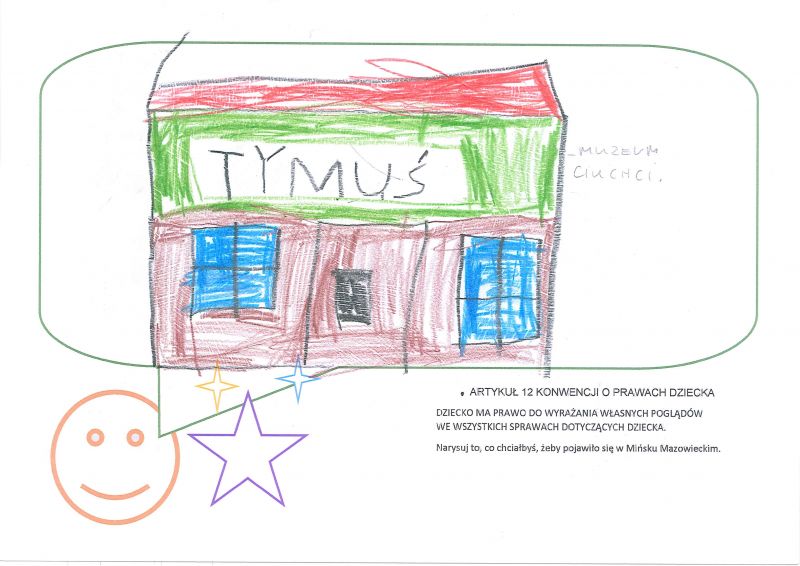 TYMUŚ
- MUZEUM
CIUCHCI.
• ARTYKUŁ 12 KONWENCJI O PRAWACH DZIECKA
DZIECKO MA PRAWO DO WYRAŻANIA WŁASNYCH POGLĄDÓW
WE WSZYSTKICH SPRAWACH DOTYCZĄCYCH DZIECKA.
Narysuj to, co chciałbyś, żeby pojawiło się w Mińsku Mazowieckim.